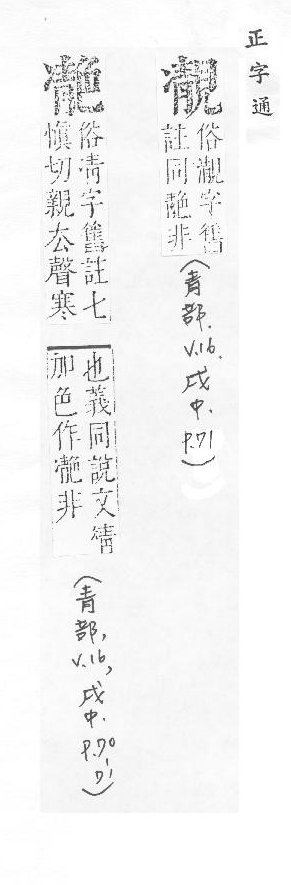 正字通
俗字舊
註同非
(青部. V.16. 戌中. P.71)
俗凊字舊註七
慎切親去聲寒
也義同說文凊
加色作非
(青部, V.16, 戌中. P.70-71)